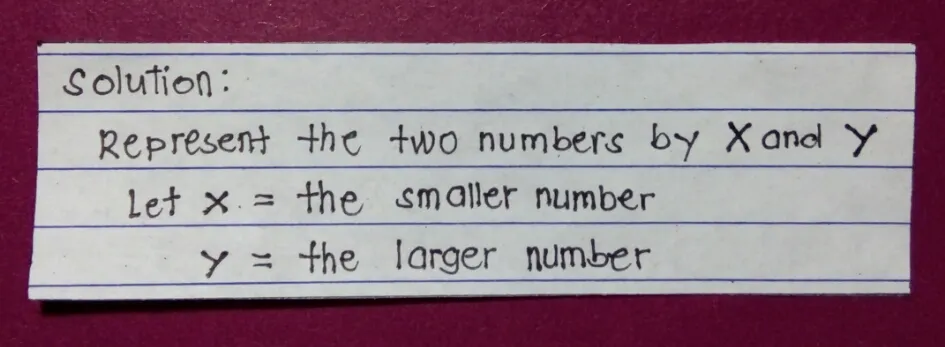 Solution:
Represent the two numbers by X and Y
Let x = the smaller number
y = the larger number